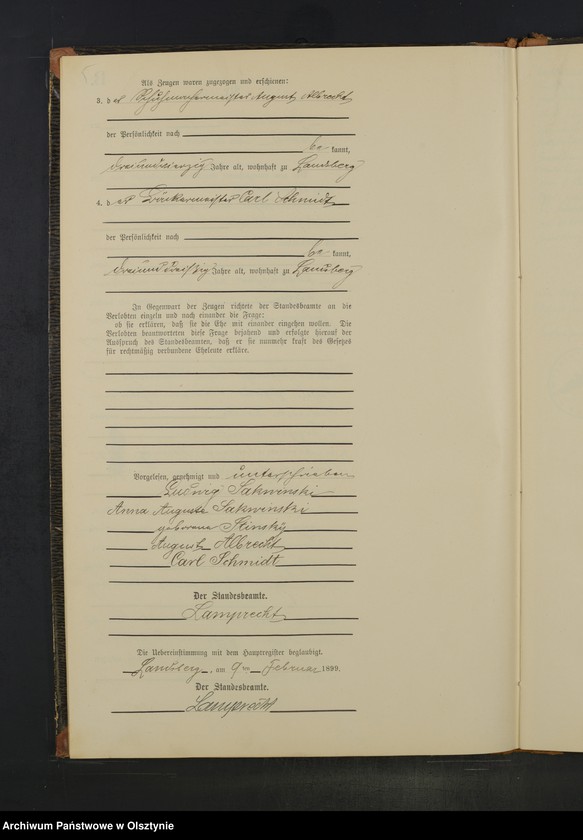 Als Zeugen waren zugezogen und erschienen:
3. der Schuhmachermeister August Albrecht
der Persönlichkeit nach
be kannt,
dreiundvierzig Jahre alt, wohnhaft zu Landsberg
4. der Bäckermeister Carl Schmidt
der Persönlichkeit nach
be kannt,
dreiunddreißig Jahre alt, wohnhaft zu Landsberg
In Gegenwart der Zeugen richtete der Standesbeamte an die
Verlobten einzeln und nach einander die Frage:
ob sie erklären, daß sie die Ehe mit einander eingehen wollen. Die
Verlobten beantworteten diese Frage bejahend und erfolgte hierauf der
Ausspruch des Standesbeamten, daß er sie nunmehr kraft des Gesetzes
für rechtmäßig verbundene Eheleute erkläre.
Vorgelesen, genehmigt und unterschrieben
Ludwig Sakwinski
Anna Auguste Sakwinski
geborene
August Albrecht
Carl Schmidt
Der Standesbeamte.
Lamprecht
Die Uebereinstimmung mit dem Hauptregister beglaubigt.
Landsberg, am 9ten Februar 1899.
Der Standesbeamte.
Lamprecht
Archiwum Państwowe w Olsztynie